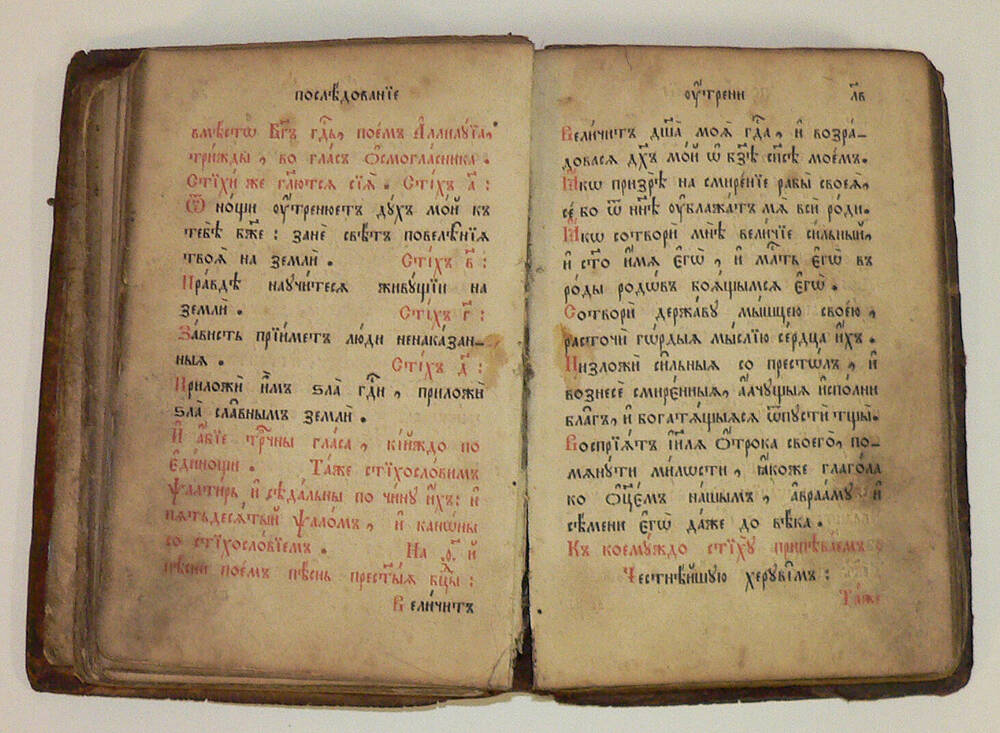 послѣ́дованїе
вмѣ́стѡ Бг҃ъ гд҇ь, пое́мъ А҆ллилꙋ́їа,
три́жды, во гла́съ Ѻ҆смогла́сника.
Стїхи́ же гл҃ются сїѧ̀. Сті́хъ а҃:
Ѿ но́щи ᲂу҆́тренюетъ дꙋ́хъ мо́й къ
тебѣ̀ бж҃е: занѐ свѣ́тъ повелѣ́нїѧ
твоѧ̀ на землѝ. Сті́хъ в҃:
Пра́вдѣ наꙋчи́тесѧ живꙋ́щїи на
землѝ. Сті́хъ г҃:
За́висть прїи́метъ лю́ди ненака́зан-
ныѧ. Сті́хъ д҃:
Приложѝ и҆̀мъ ѕла̀ гд҇и, приложѝ
ѕла̀ сла́внымъ землѝ.
И҆ а҆́бїе трⷪ҇чны гла́са, кі́йждо по
є҆ди́нощи. Та́же стїхосло́вимъ
ѱалти́рь и҆ сѣда́льны по чи́нꙋ и҆́хъ: и҆
пѧтьдесѧ́тый ѱало́мъ, и҆ канѡ́ны
со стїхосло́вїемъ. На ѳ҃.й
пѣ́сни пое́мъ пѣ́снь прест҃ы́ѧ бц҃ы:
Вели́читъ
ᲂу҆́трени л҃в
Вели́читъ дш҃а̀ моѧ̀ гд҇а, и҆ возра́-
довасѧ дх҃ъ мо́й ѡ҆ бз҃ѣ сп҃сѣ мое́мъ.
Ꙗ҆́кѡ призрѣ̀ на смире́нїе рабы̀ своеѧ̀,
се́ бо ѿ нн҃ѣ ᲂу҆блажа́тъ мѧ̀ всѝ ро́ди.
Ꙗ҆́кѡ сотворѝ мнѣ̀ вели́чїе си́льный,
и҆ ст҃о и҆́мѧ є҆гѡ̀, и҆ мл҇ть є҆гѡ̀ въ
ро́ды родѡ́въ боѧ́щымсѧ є҆гѡ̀.
Сотворѝ держа́вꙋ мы́шцею свое́ю,
расточѝ гѡ́рдыѧ мы́слїю се́рдца и҆́хъ.
Низложѝ си́льныѧ со престѡ́лъ, и҆
вознесѐ смире́нныѧ, а҆́лчꙋщыѧ и҆спо́лни
бла́гъ, и҆ богатѧ́щыѧсѧ ѿпꙋстѝ тщы̀.
Воспрїѧ́тъ і҆и҃лѧ Ѻ҆́трока своего̀, по-
мѧнꙋ́ти ми́лѡсти, ꙗ҆́коже глаго́ла
ко Ѻ҆ц҃е́мъ на́шымъ, а҆враа́мꙋ и҆
сѣ́мени є҆гѡ̀ да́же до вѣ́ка.
Къ коемꙋ́ждо стїхꙋ̀ припѣва́емъ
Честнѣ́йшꙋю херꙋві̑мъ:
Та́же